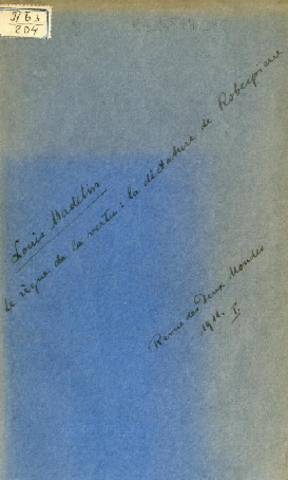 3763
204
Louis Madelin
Le règne de la vertu : la dictature de Robespierre
Revue des Deux Mondes
1911. I.